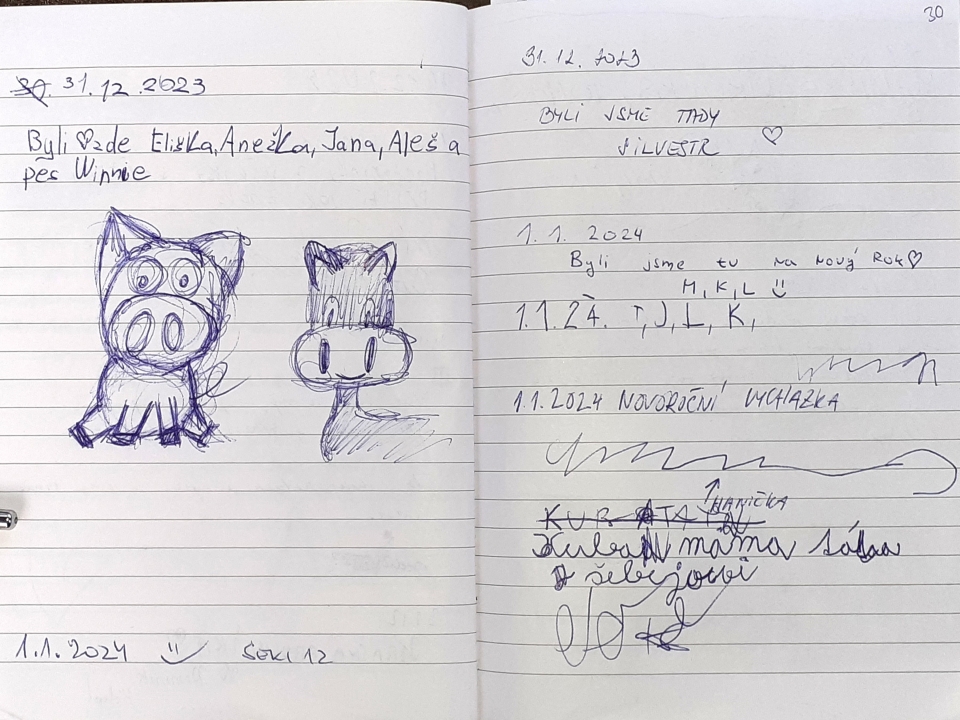 31.12.2023
Byli zde Eliška, Anežka, Jana, Aleš a
pes Winnie
1.1.2024 ŠEKI 12
30
31.12.2023
BYLI JSME TADY
SILVESTR
1.1.2024
Byli jsme tu na Nový Rok
M, K, L
1.1.24. T, J, L, K,
1.1.2024 NOVOROČNÍ VYCHÁZKA
HANIČKA
máma